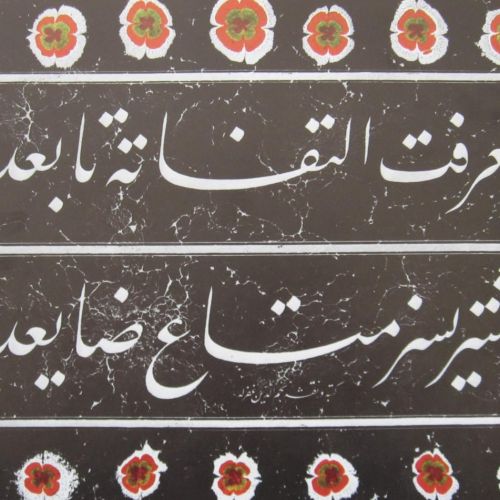 عرفت التفاته تابعد
شتریسز متاع ضایعد